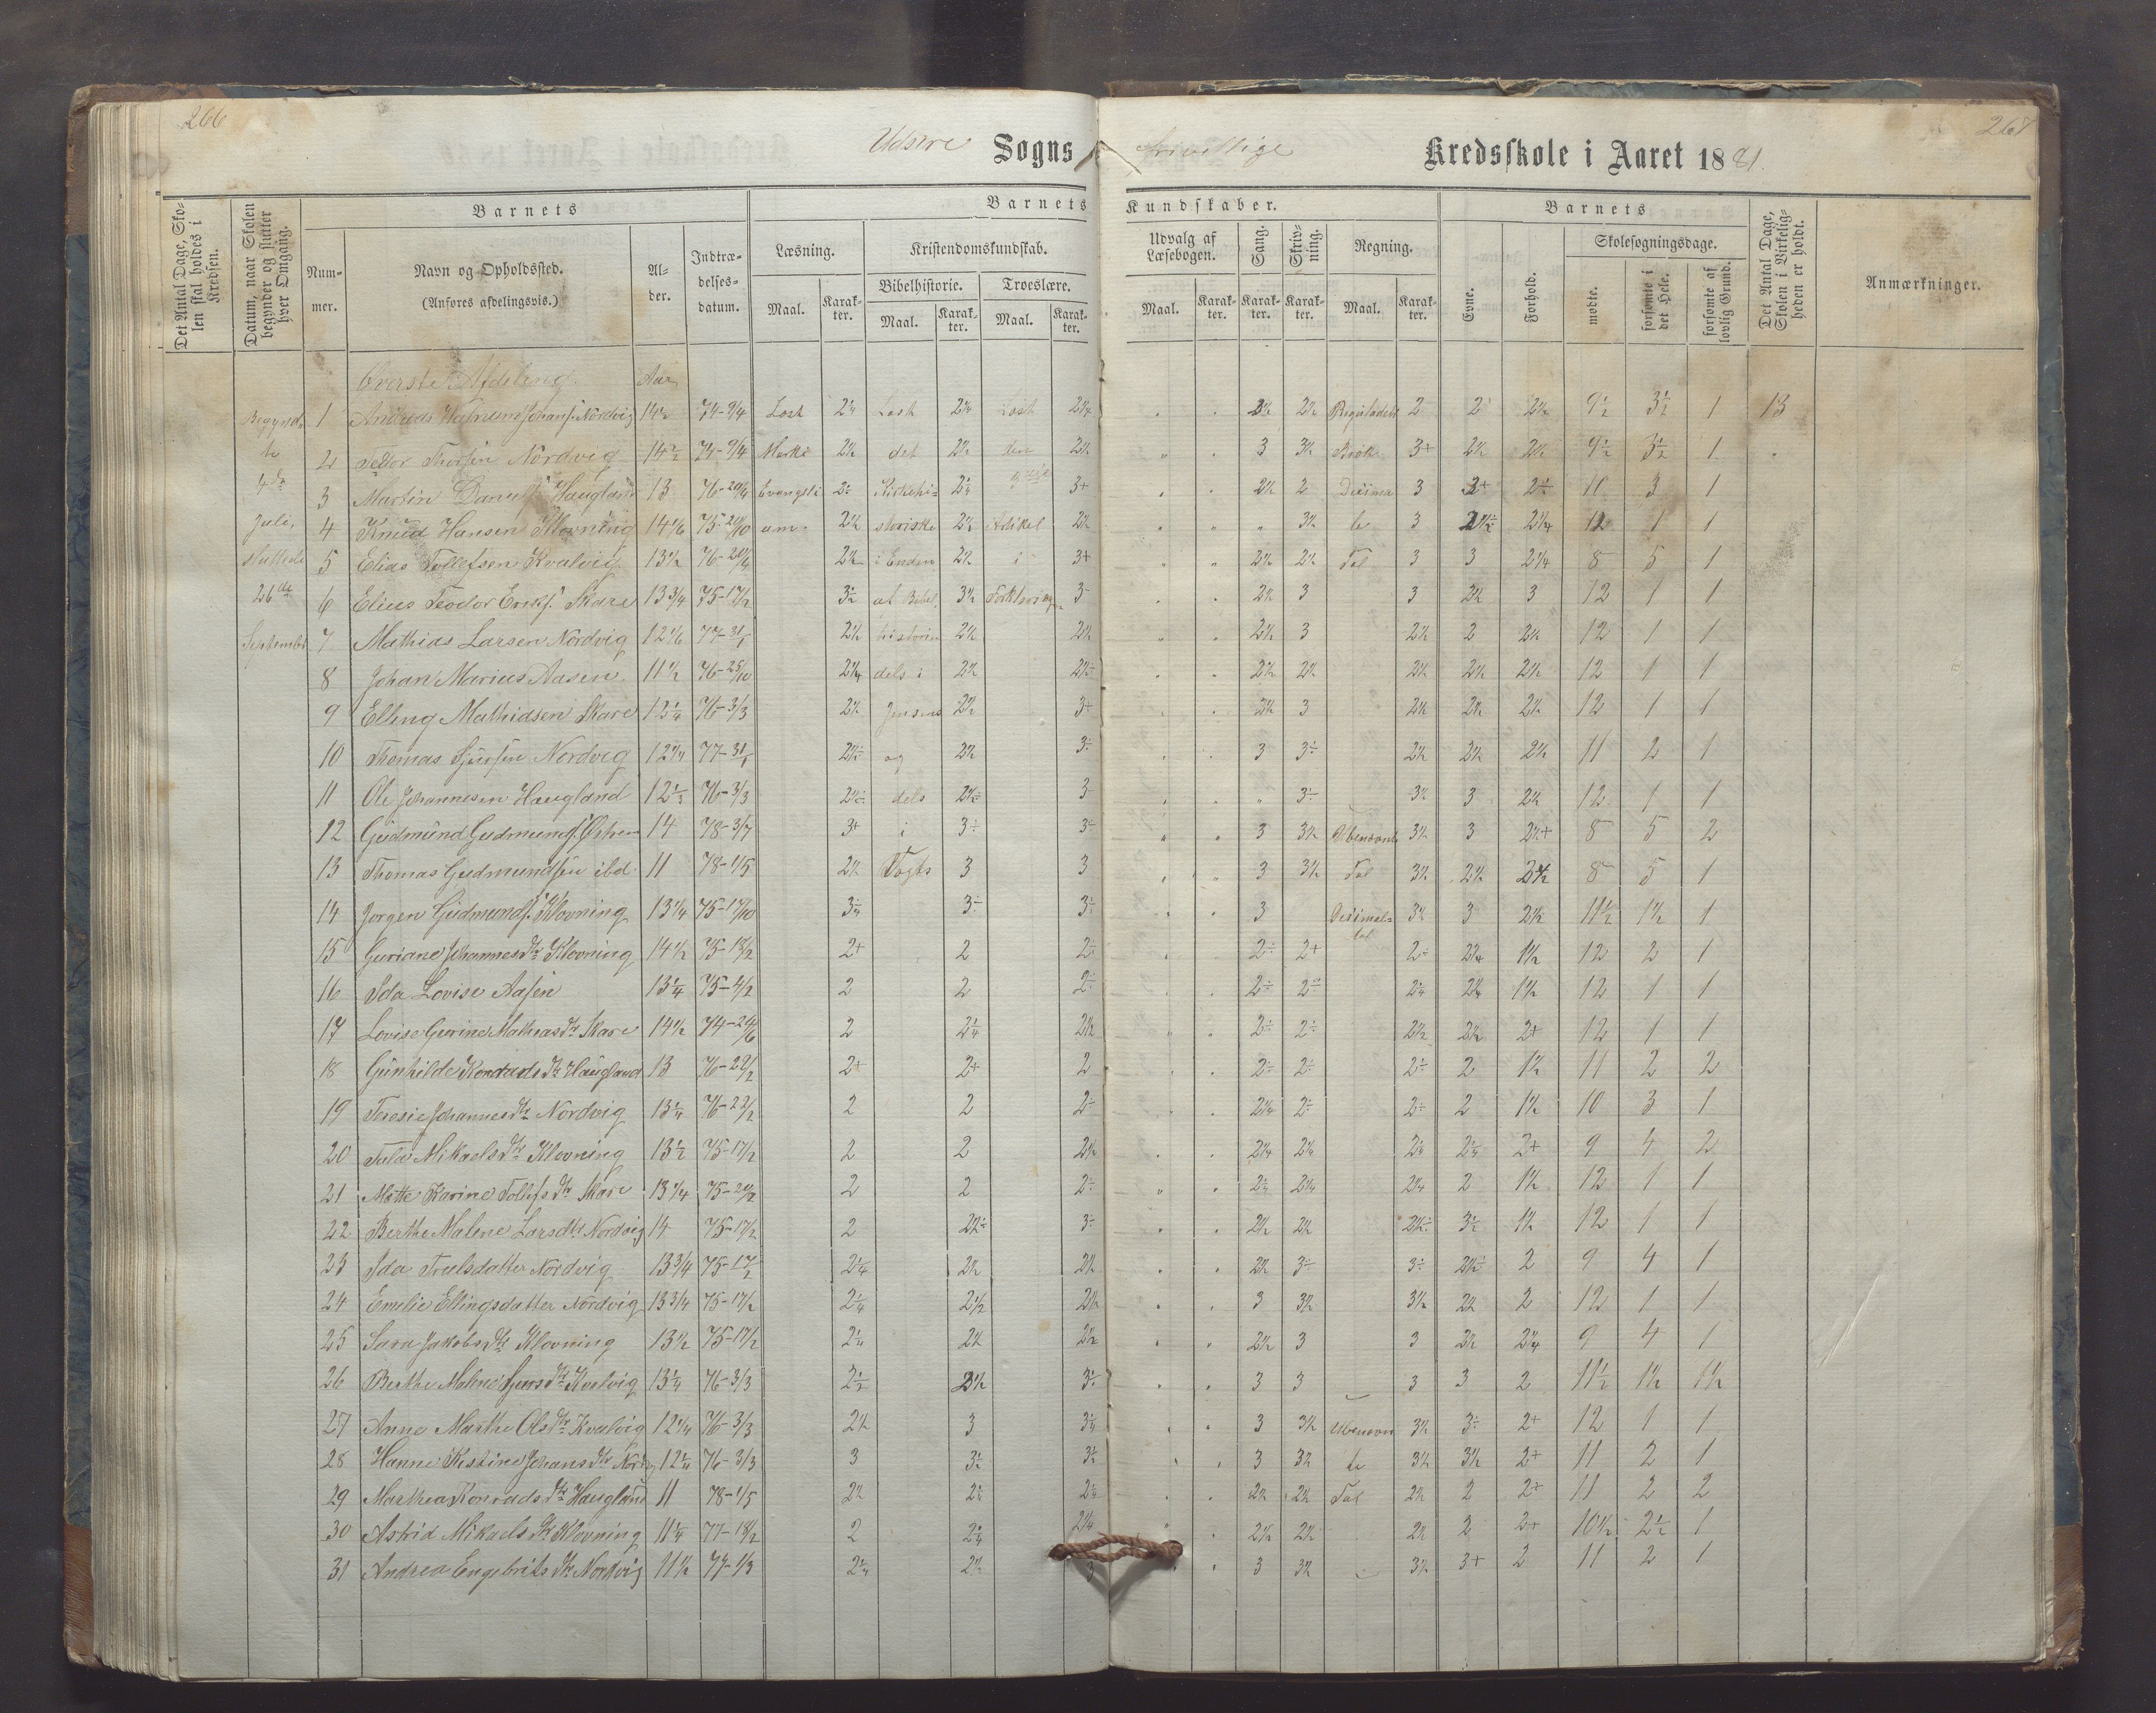 266
267
Udsire Sogns frivillige Kredsskole i Aaret 1881.
Det Antal Dage, Skolen skal holdes i Kredsen.
Datum, naar Skolen begynder og slutter hver Omgang.
Barnets
Nummer.
Navn og Opholdssted.
(Anføres afdelingsvis.)
Alder.
Indtrædelsesdatum.
Barnets Kundskaber.
Læsning.
Maal. Karakter.
Kristendomskundskab.
Bibelhistorie.
Maal. Karakter.
Troeslære.
Maal. Karakter.
Udvalg af Læsebogen.
Maal. Karakter.
Sang.
Karakter.
Skrivning.
Karakter.
Regning.
Maal. Karakter.
Barnets
Evne.
Forhold.
Skolesøgningsdage.
mødte.
forsømte i det Hele.
forsømte af lovlig Grund.
Det Antal Dage, Skolen i Virkeligheden er holdt.
Anmærkninger.
Øverste Afdeling. Aar
1 Andreas Johans. Nordvig 14½ 74-9/4 Læst 2¼ Læst 2¼ Læst 2¼ 2½ Reguladetri 2 2 2½ 9½ 3½ 1 13
2 Peder Thorsen Nordvig 14½ 74-9/4 Marki 2½ det 2½ den 2½ 3 3½ Brøk 3+ 2½ 2½ 9½ 3½ 1
4de
3 Martin Haugland 13 76-20/4 Evangeli 2÷ Kirkehi- 3+ 2½ 2 Decima 3 10 3 1
Juli,
4 Knud Hansen Klovning 14 1/6 um. 2½ storiske 2½ Artikel 2½ 3½ le 3 12 1 1
sluttede
5 Elias Tollefsen Kvalvig 13½ 2½ i Enden 2½ i 3+ 2½ 2½ Tal 3 3 2¼ 8 5 1
26de
6 Elias Teodor Eriks. Skare 13¾ 75-17/2 af Bibel 3½ Forklaringen 3 2½ 3 3 2½ 3 12 1 1
September
7 Mathias Larsen Nordvig 12 1/6 77-31/1 2½ historien 2½ 2½ 2½ 3 2½ 2 2½ 12 1 1
8 Johan Marius Aasen 11½ 76-25/10 dels i 2½ 2½ 2½ 2½ 2½ 2½ 12 1 1
9 Elling Mathidsen Skare 12¼ 76-3/3 2½ Jensens 2½ 3+ 3 2½ 2½ 2½ 12 1 1
10 Thomas Sjursen Nordvig 12¼ 77-31/1 og 2½ 3÷ 3 3÷ 2½ 2½ 2½ 11 2 1
11 Ole Johannesen Haugland 76-3/3 dels 3 3÷ 3½ 3 2½ 12 1 1
12 Gudmund Gudmunds. 14 78-3/7 3+ i 3÷ 3÷ 3 3½ Ubenævnte 3½ 3 2½+ 8 5 2
13 Thomas Gudmundsen ibd. 11 78-1/5 2½ Vogts 3 3 3 3½ Tal 3½ 2½ 2½ 8 5 1
14 Jørgen Gudmunds. Klovning 13¼ 3÷ 3÷ 3 Decimal-
tal 3½ 3 2½ 11½ 1½ 1
15 Guriane Johannesdtr Klovning 14½ 75-18/2 2+ 2 2÷ 2÷ 2+ 2÷ 2¼ 1½ 12 2 1
16 Ida Lovise Aasen 13¼ 75-4/2 2 2 2÷ 2÷ 2÷ 2¼ 2¼ 1½ 12 1 1
17 Lovise Gurine Mathiasdtr Skare 14½ 74-24/6 2 2¼ 2½ 2÷ 2÷ 2½ 2½ 2+ 12 1 1
18 Gunhilde Konradsdtr Haugland 13 76-22/2 2+ 2+ 2 2÷ 2÷ 2÷ 2 1½ 11 2 2
19 Teresie Johannesdtr Nordvig 13¼ 76-22/2 2 2 2÷ 2¼ 2÷ 2÷ 2 1½ 10 3 1
20 Mikaelsdtr Klovning 13½ 75-17/2 2 2 2½ 2¼ 2¼ 2¼ 2¼ 2+ 9 4 2
21 Mette Karine Tollefsdtr Skare 13¼ 2 2 2÷ 2¼ 2¼ 2¼ 2 1½ 12 1 1
22 Berthe Malene Larsdtr Nordvig 14 75-17/2 2 2½÷ 3÷ 2½ 2½ 2½÷ 3½ 1½ 12 1 1
23 Ida Truelsdatter Nordvig 13¾ 75-17/2 2¼ 2½ 2½ 2½ 3÷ 3÷ 2½÷ 2 9 4 1
24 Emelie Ellingsdatter Nordvig 13¾ 75-17/2 2¼ 2½ 2½ 3 3½ 3½ 2½ 2 12 1 1
25 Sara Jakobsdtr Klovning 13½ 75-17/2 2¼ 2½ 2½ 2½ 3 3 2½ 2¼ 9 4 1
26 Berthe Malene Sjursdtr Kvalvig 13¼ 76-3/3 2½ 2½ 3÷ 3 3 3 3 2 11½ 1½ 1½
27 Anne Marthe Olsdtr Kvalvig 12¼ 76-3/3 2½ 3 3¼ 3 3½ Ubenævn 3½ 3÷ 2+ 12 1 1
28 Hanne Kistine Johansdtr Nordv. 12¼ 76-3/3 3 3½ 3½ 3 3½ te 3½ 3½ 2+ 11 2 1
29 Marthea Konradsdtr Haugland 11 78-1/5 2½ 2¼ 2¼ 2½ 2½ Tal 2½ 2 2+ 11 2 2
30 Astrid Mikaelsdtr Klovning 11¼ 77-18/2 2 2¼ 2¼ 2½ 2½ 2½ 2 2+ 10½ 2½ 1
31 Andrea Engebritsdtr Nordvig 11½ 77-1/3 2¼ 2½ 3 3 3½ 3½ 3+ 2 11 2 1